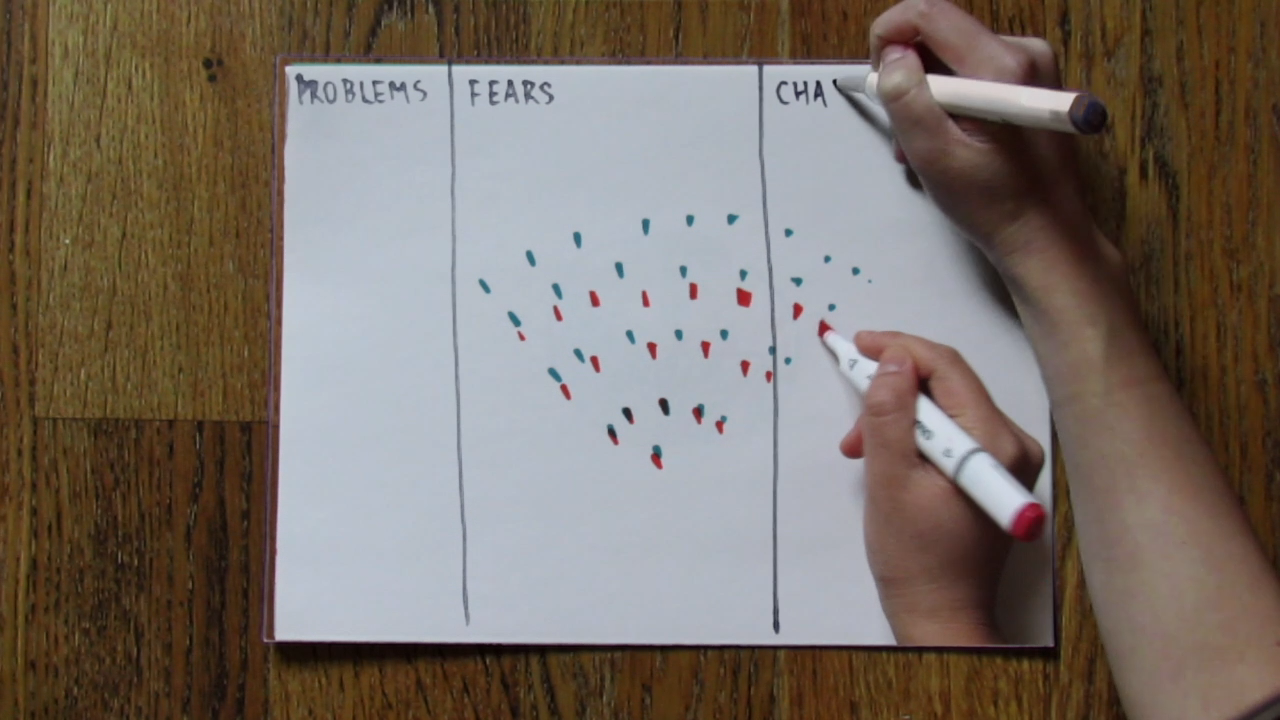 PROBLEMS
FEARS
CHA